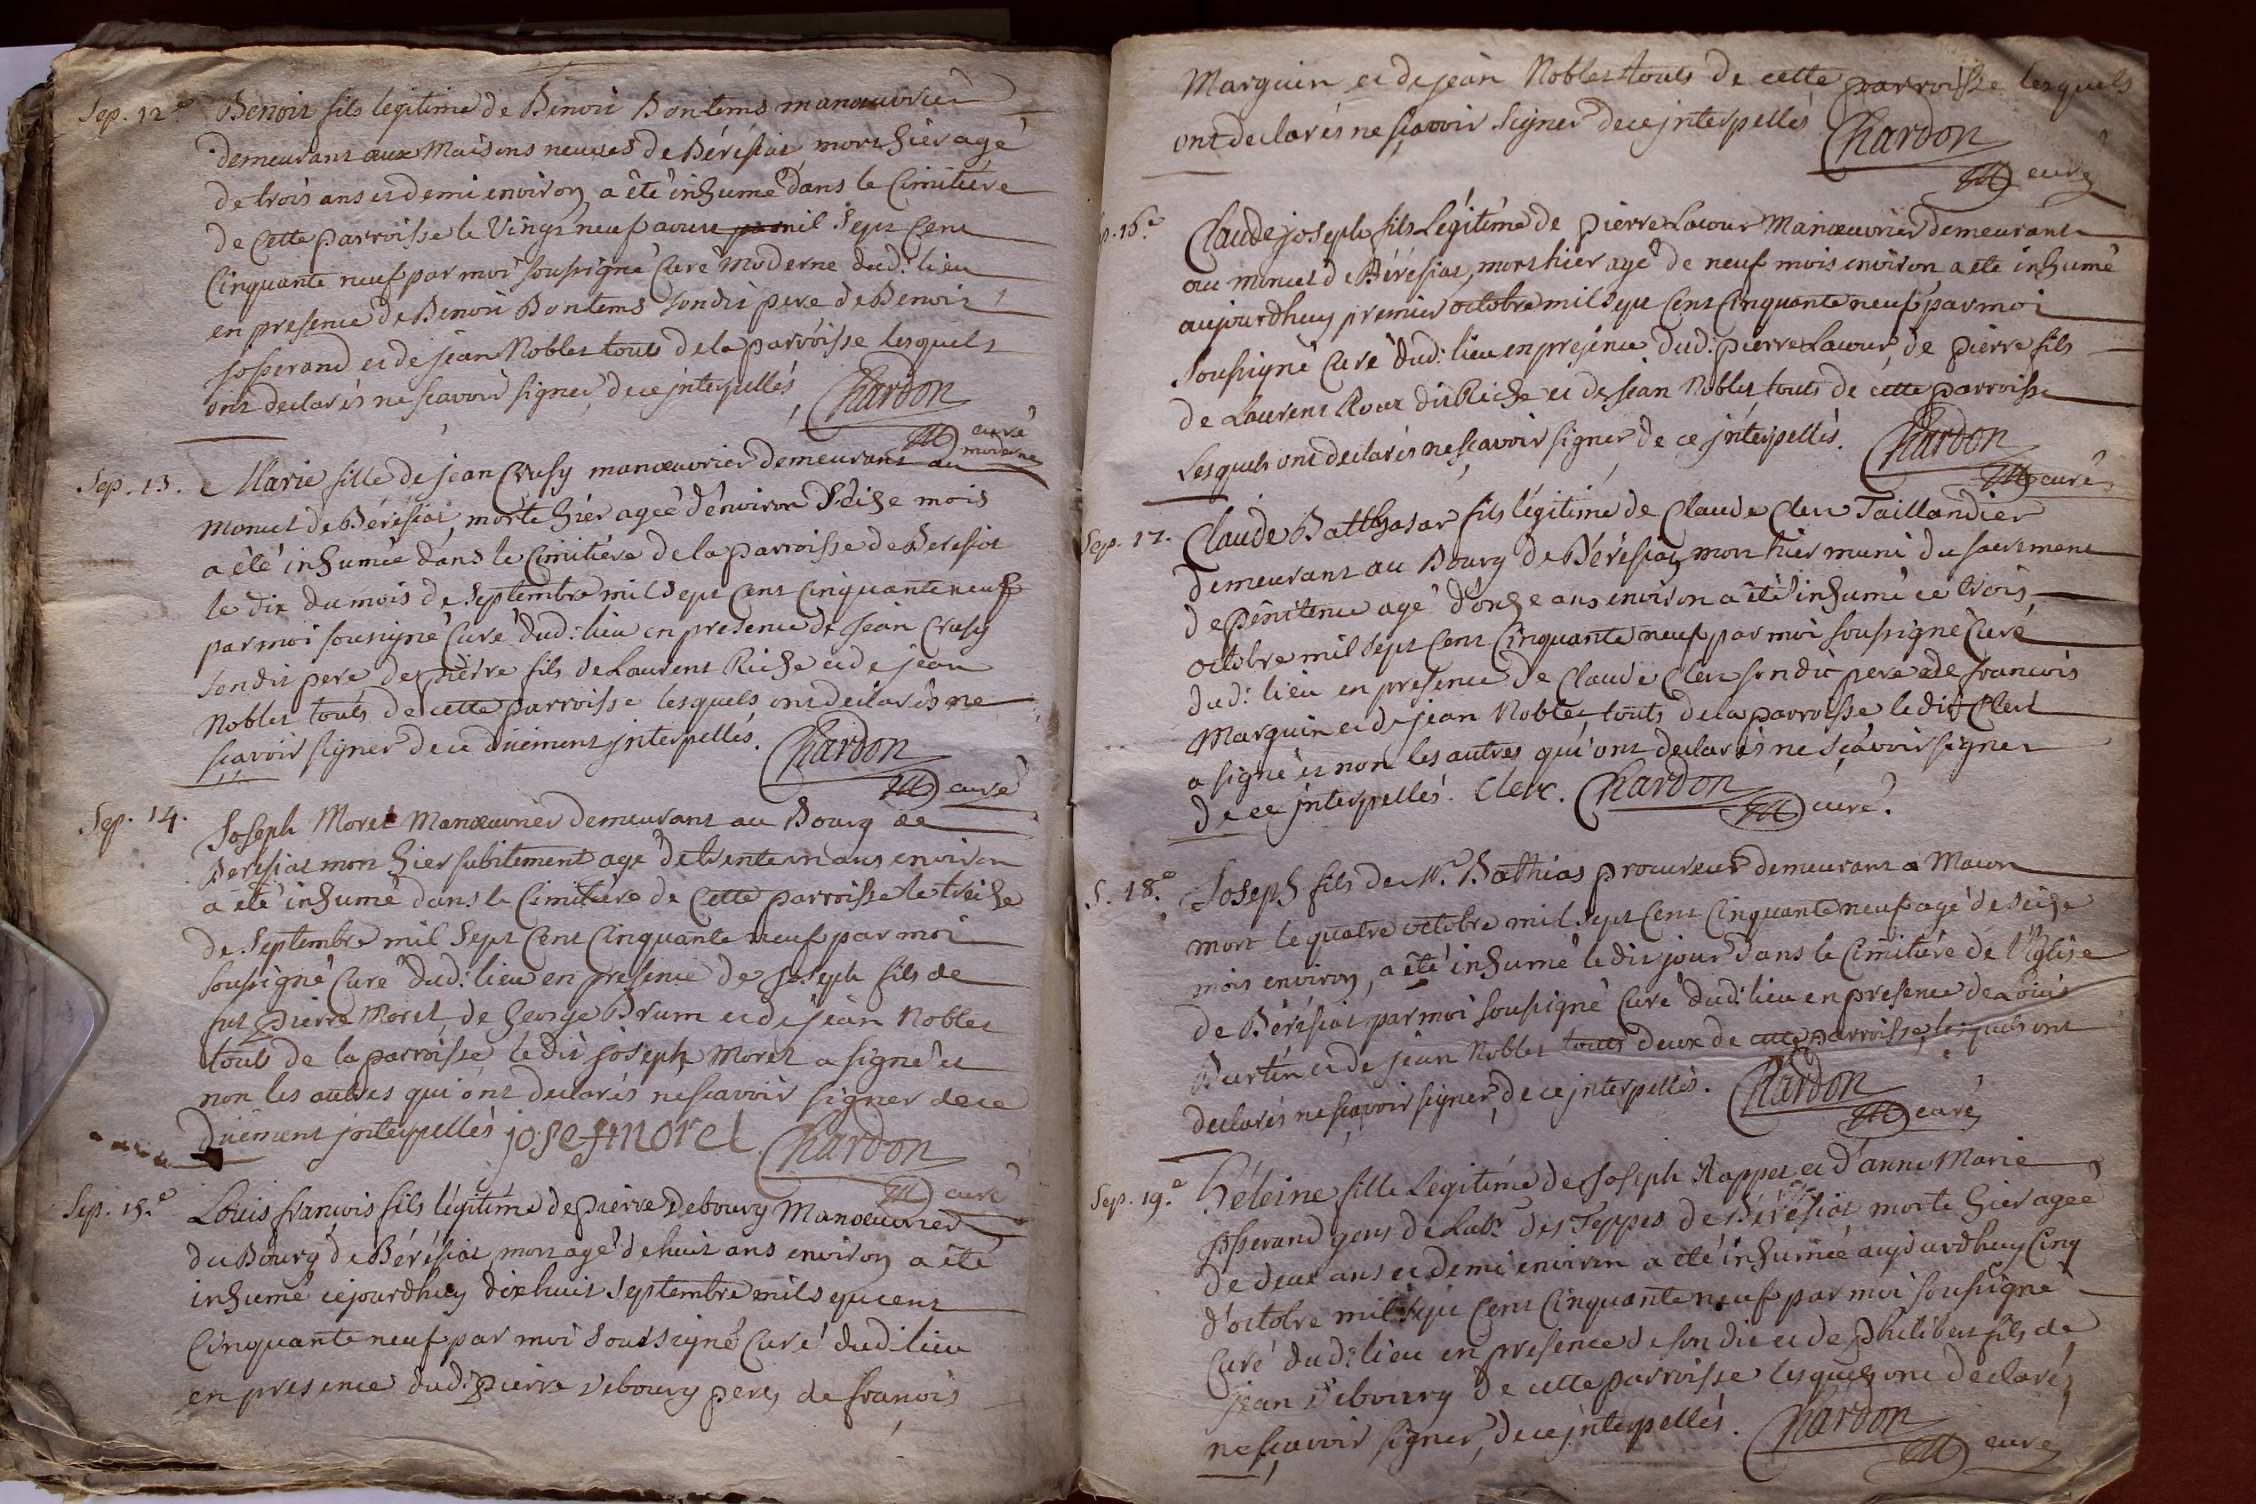 Sep. 12.e Benoit fils legitime de Benoit Bontems manœuvrier
demeurant aux Maisons neuves de Béréziat mort hier agé
de trois ans et demi environ a été inhumé dans le Cimitiere
de Cette parroisse le Vingt neuf aoust mil Sept Cent
Cinquante neuf par moi soussigné Curé Moderne dud: lieu
en presence de Benoit Bontems sondit pere de Benoit
Josserand et de jean Noblet touts de la parroisse lesquels
ont declarés ne scavoir signer, de ce jnterpellés, Chardon
curé
moderne
Sep. 13. Marie fille de jean Crusy manœuvrier demeurant au
monet de Béréziat, morte hier agée d'environ Seize mois
a été inhumée dans le Cimitiere de la parroisse de Beresiat
le dix du mois de Septembre mil sept Cent Cinquante neuf
par moi sousigné Curé dud: lieu en presence de jean Crusy
sondit pere de pierre fils de Laurent Riche et de jean
Noblet touts de cette parroisse lesquels ont declarés ne
sçavoir signer de ce duëment jnterpellés. Chardon
curé
Sep. 14. Joseph Moret Manœuvrier demeurant au Bourg de
Beresiat mort hier subitement agé de trente un ans environ
a été inhumé dans le Cimitiere de Cette parroisse le treize
de Septembre mil Sept Cent Cinquante neuf par moi
soussigné Curé dud: lieu en presence de Joseph fils de
fut pierre Moret de George Brum et de jean Noblet
touts de la parroisse, ledit joseph Moret a signé et
non les autres qui ont declarés ne scavoir signer de ce
duëment jnterpellés josef morel Chardon
curé
Sep. 15.e Louis francois fils légitime de pierre Debourg Manœuvrier
du Bourg de Béréziat, mort agé de huit ans environ a été
inhumé cejourdhuy dixhuit Septembre mil sept cent
Cinquante neuf par moi Soussigné Curé dud: lieu
en presence dud: pierre Debourg pere, de francois
Marguin et de jean Noblet touts de cette parroisse lesquels
ont declarés ne sçavoir signer de ce jnterpellés Chardon
curé
p. 16.e Claude joseph fils Légitime de pierre Lacour Manœuvrier demeurant
au monet de Béréziat, mort hier agé de neuf mois environ a été inhumé
aujourdhuy premier octobre mil Sept Cent Cinquante neuf par moi
Soussigné Curé dud: lieu en presence dud: pierre Lacour, de pierre fils
de Laurent Roux dit Riche et de jean Noblet touts de cette parroisse
Lesquels ont declarés ne sçavoir signer de ce jnterpellés. Chardon
curé
Sep. 17. Claude Balthasar fils légitime de Claude Clerc Taillandier
demeurant au Bourg de Béréziat, mort hier muni du sacrement
de penitence agé d'onze ans environ a été inhumé ce trois
octobre mil sept Cent Cinquante neuf par moi soussigné Curé
dud: lieu en presence de Claude Clerc sondit pere de francois
Marguin et de jean Noblet, touts de la parroisse ledit Clerc
a signé et non les autres qui ont declarés ne sçavoir signer
de ce jnterpellés. Clerc. Chardon curé.
S. 18.e Joseph fils de Mr. Bathias procureur demeurant a Macon
mort le quatre octobre mil sept Cent Cinquante neuf agé de seize
mois environ, a été inhumé ledit jour dans le Cimitiére de l'Eglise
de Béréziat par moi soussigné Curé dud: lieu en presence de Louis
Burtin et de jean Noblet touts deux de parroisse, lesquels ont
declarés ne sçavoir signer, de ce jnterpellés. Chardon
curé
Sep. 19.e héleine fille Légitime de Joseph Rappet et d'anne Marie
Josserand gens de Labr. des Teppes de Béréziat morte hier ageé
de deux ans et demi environ a été inhumée aujourdhuy Cinq
d'octobre mil Sept Cent Cinquante neuf par moi soussigné
Curé dud: lieu en presence de sondit et de philibert fils de
jean Debourg de cette parroisse lesquels ont declarés
ne sçavoir signer, de ce jnterpellés. Chardon
curé